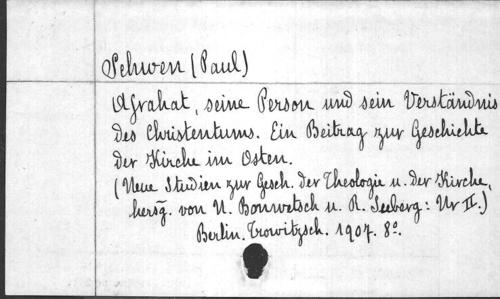 Schwen (Paul)
Afrahat, seine Person und sein Verständnis
des Christentums. Ein Beitrag zur Geschichte
der Kirche im Osten.
(Neue Studien zur Gesch. der Theologie u. der Kirche,
hersg. von N. Bonwetsch u. R. Seeberg: Nr II.)
Berlin. Trowitzsch. 1907. 8º.